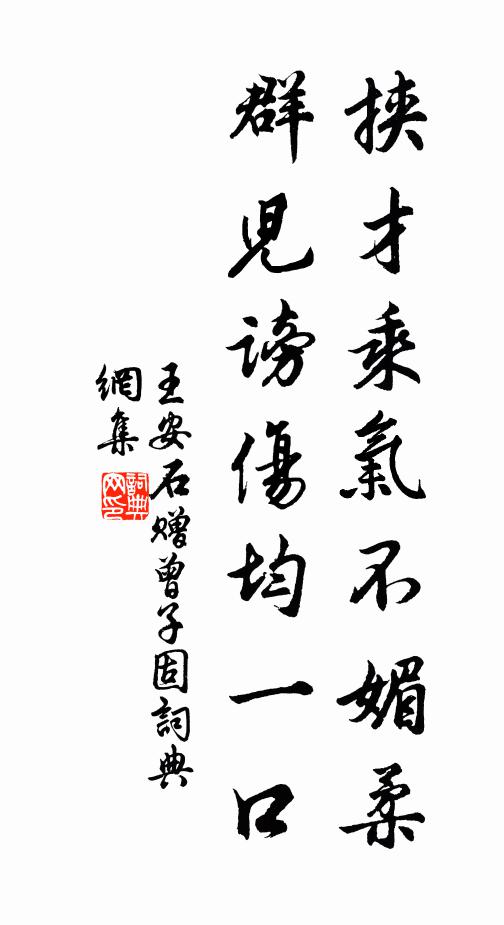 挾才乘氣不媚柔
群兒謗傷均一口
王安石贈曾子固詞典
網集
詞典
网印